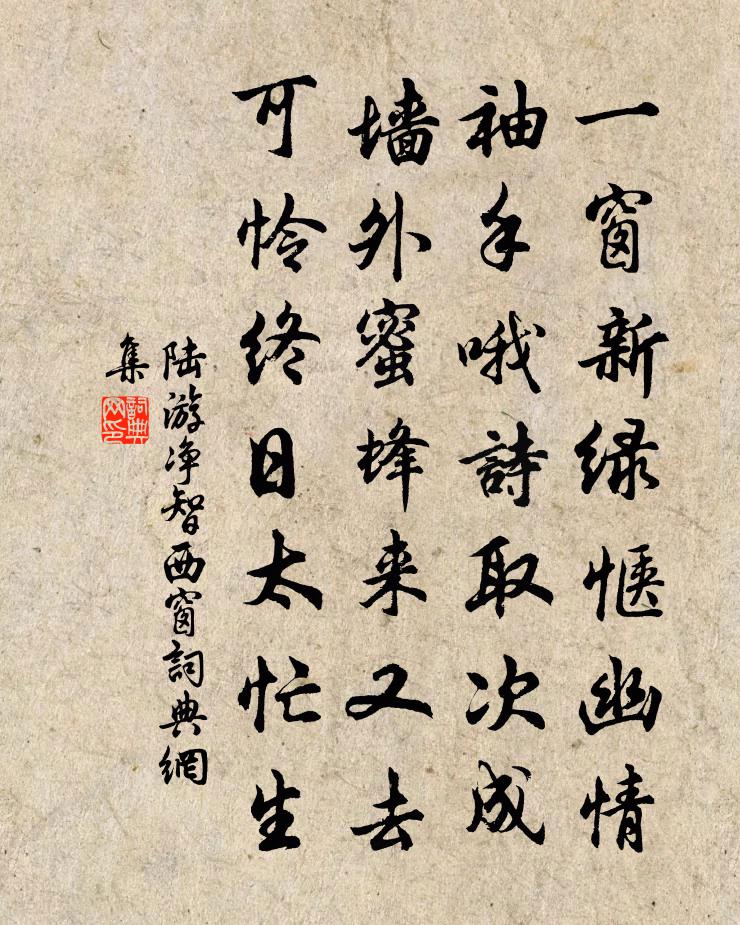 一窗新緑愜幽情
袖手哦詩取次成
墙外蜜蜂来又去
可怜终日太忙生
陆游净智西窗詞典網
集
詞典
网印